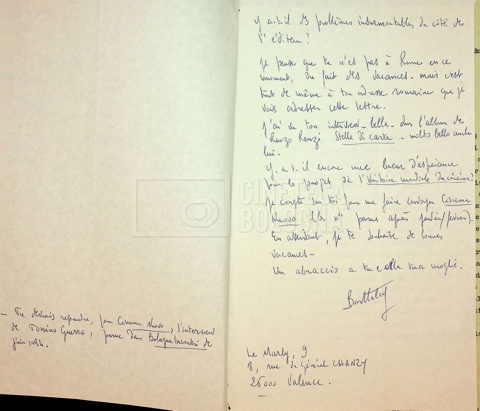 y a-t-il des problèmes insurmontables du côté de
l'éditeur?
Je pense que tu n'es pas à Rome en ce
moment, du fait des vacances - mais c'est
tout de même à ton adresse romaine que je
vais adresser cette lettre.
J'ai vu ton interview - belle - dans l'album de
Renzo Renzi Stelle di carta - molto bello anche
lui.
Y a-t-il encore une lueur d'espérance
pour le projet de l'Histoire mondiale du cinéma?
Je compte sur toi pour me faire envoyer Cinema
Nuovo (les nos parus après janvier/février).
En attendant, je te souhaite de bonnes
vacances -
Un abraccio a te e alla tua moglie.
Barthélemy
- Tu devrais reprendre, pour Cinema Nuovo, l'interview
de Tonino Guerra, parue dans Bologna Incontri de
juin 1984.
Le Marly, 9
2, rue du Général CHANZY
26000 Valence.
CINETECA
BOLOGNA